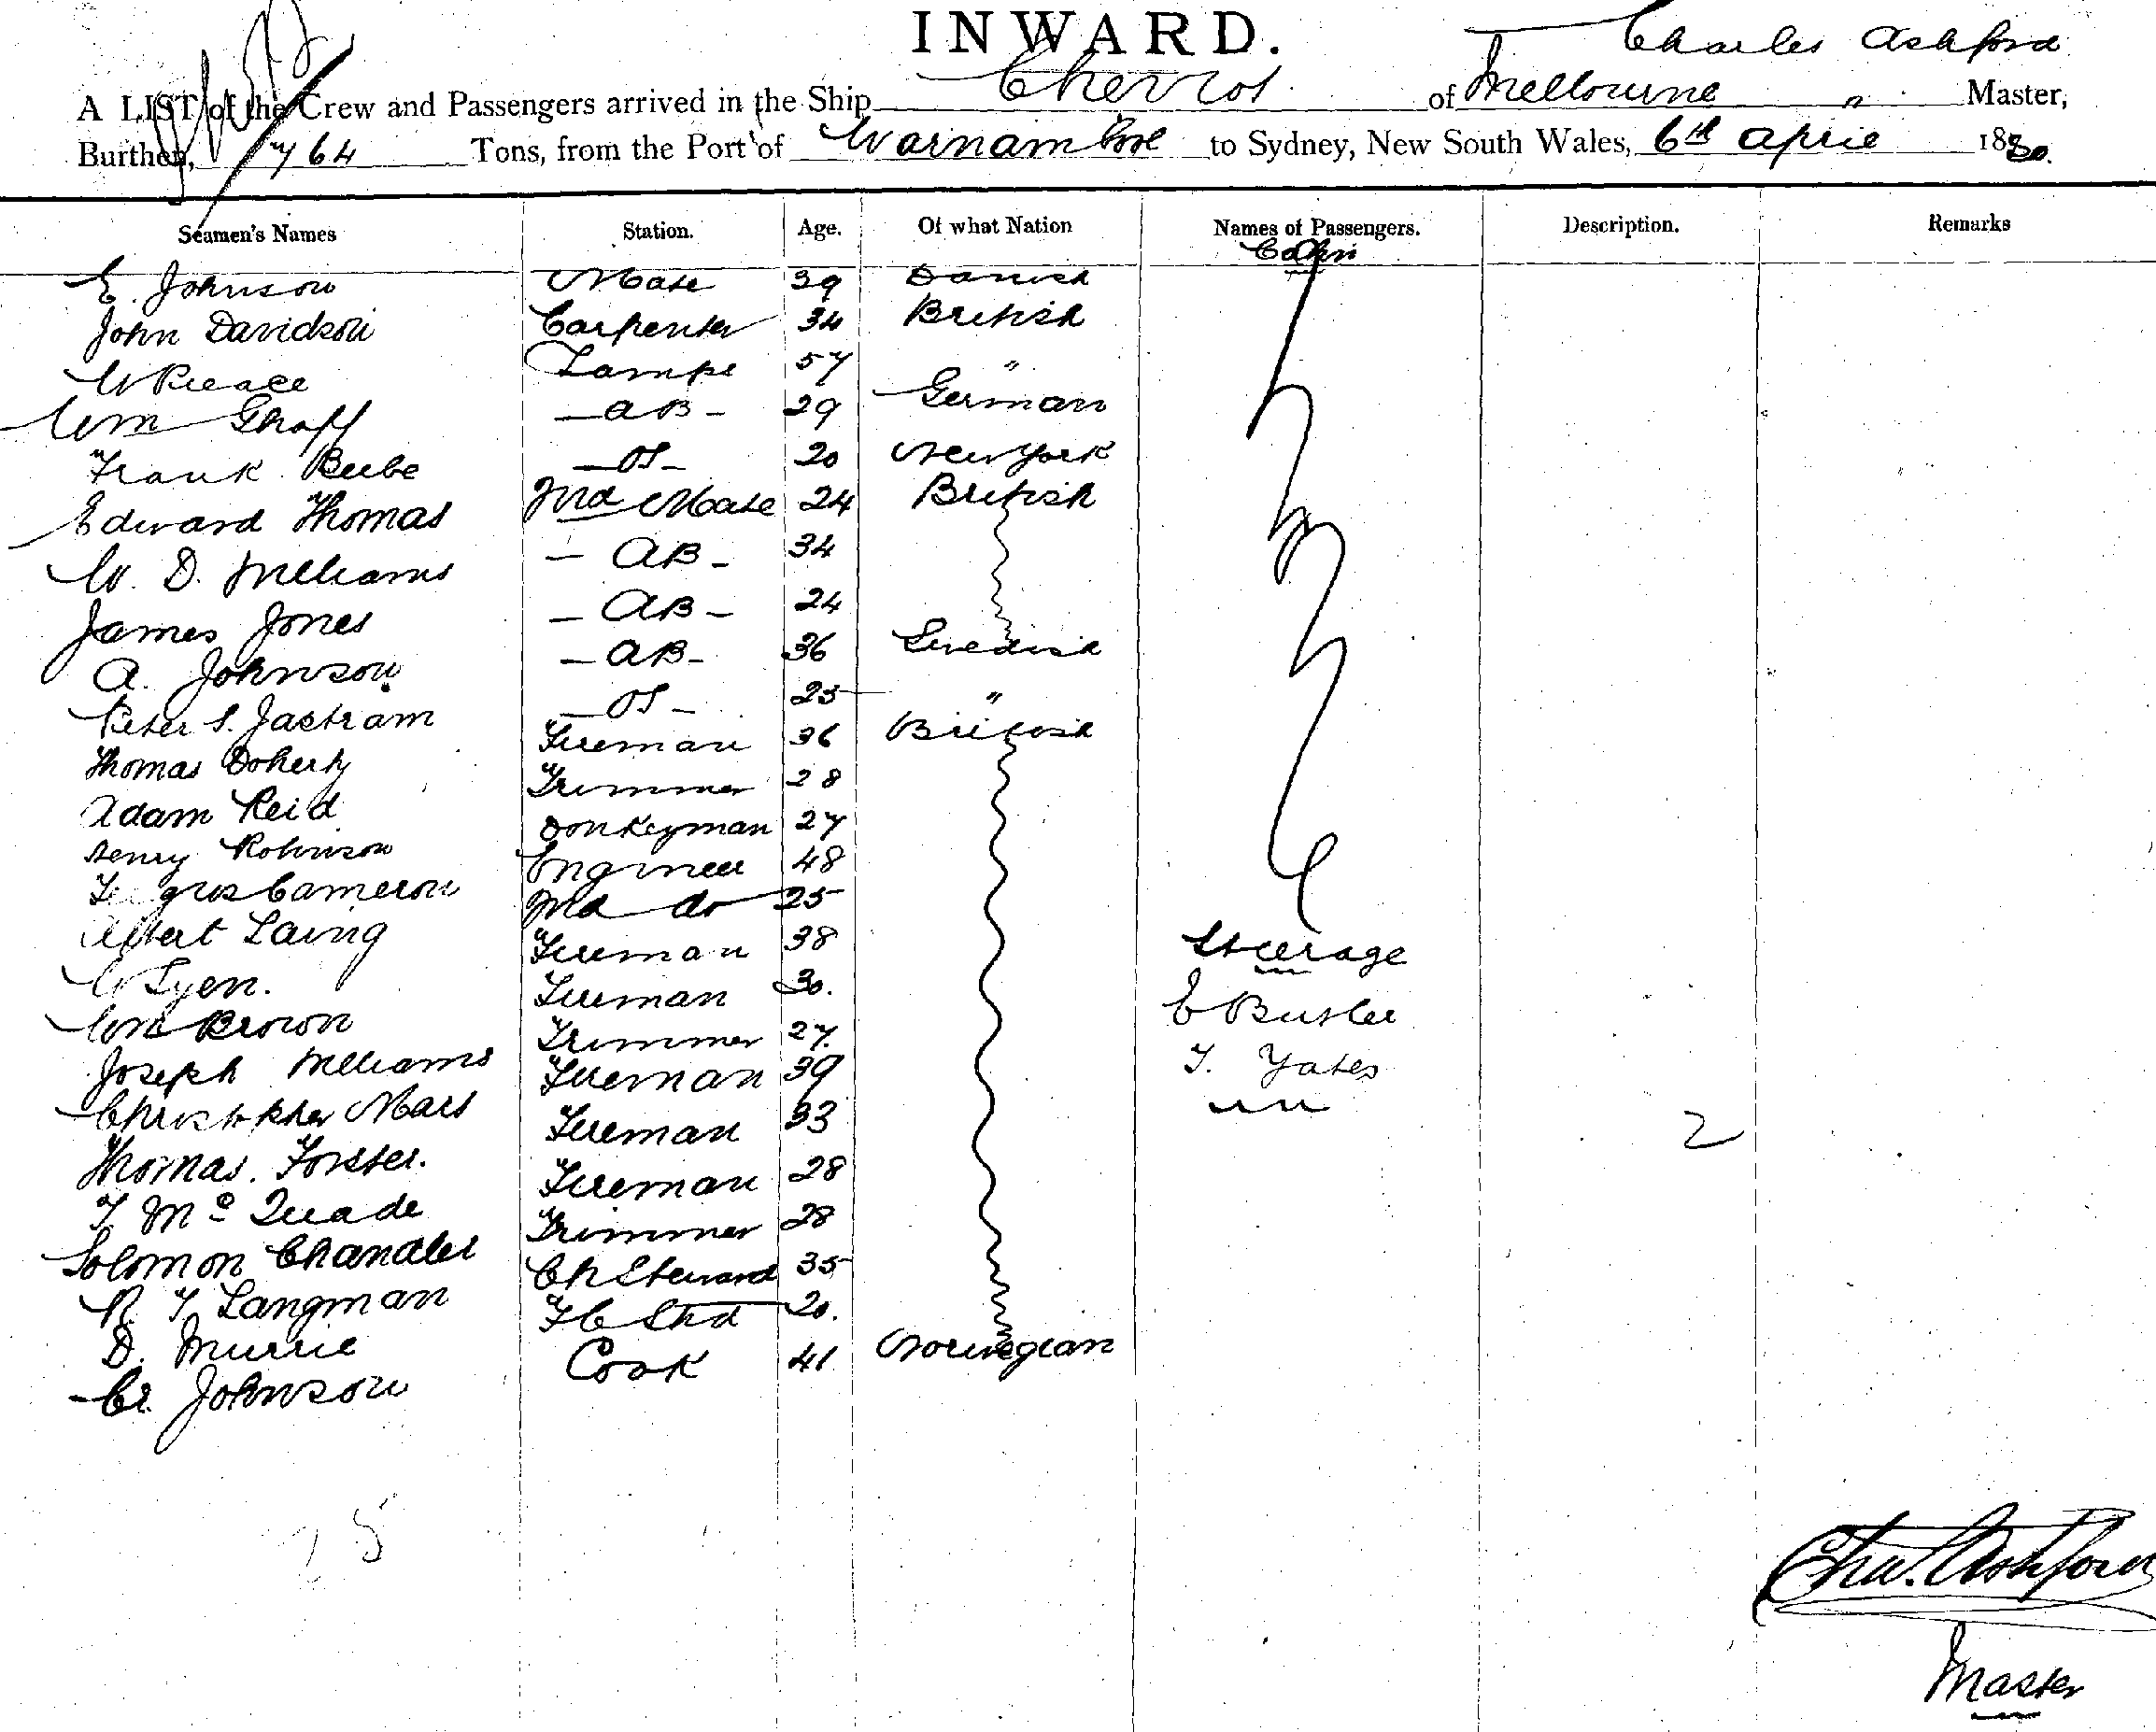 INWARD.
Charles Ashford
A LIST of the Crew and Passengers arrived in the Ship Cheviot of Melbourne " Master,
Burthen, 764 Tons, from the Port of Warnambool to Sydney, New South Wales, 6th April 18
Seamen's Names Station. Age. Of what Nation Names of Passengers. Description. Remarks
Cabin
E. Johnson Mate 39 Danish
John Davidson Carpenter 34 British
W Pieace Lamps 57 "
Wm Ghaff AB 29 German
Frank Beebe OS 20 New York
Edward Thomas 2nd Mate 24 British
W. D. Williams AB 34
James Jones AB 24
A. Johnson AB 36 Swedish
Peter S. Jastram OS 25 "
Thomas Doherty Fireman 36 British
Adam Reid Trimmer 28
Henry Robinson Donkeyman 27
Fergus Cameron Engineer 48
Albert Laing 2nd do 25
W Lyen. Fireman 38 Steerage
Wm Brown Fireman 30. E Butler
Joseph Williams Trimmer 27. T. Yates
Christopher Mars Fireman 39
Thomas. Forster. Fireman 33 2
T McQuade Fireman 28
Solomon Chandler Trimmer 28
R. T. Langman Ch Steward 35
D. Murrie FC Std 20.
Cr. Johnson Cook 41 Norwegian
25
Chas. Ashford
Master